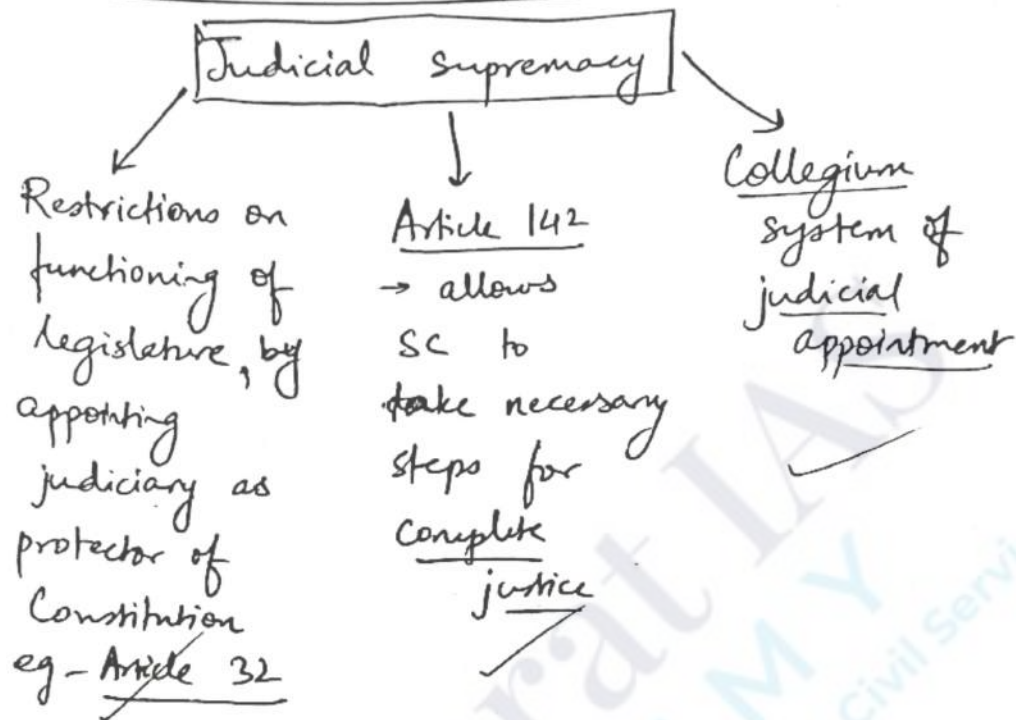 Judicial supremacy
Restrictions on
functioning of
legislature, by
appointing
judiciary as
protector of
Constitution
eg - Article 32
Article 142
→ allows
SC to
take necessary
steps for
complete
justice
Collegium
system of
judicial
appointment
rat IAS
M Y
Civil Servi